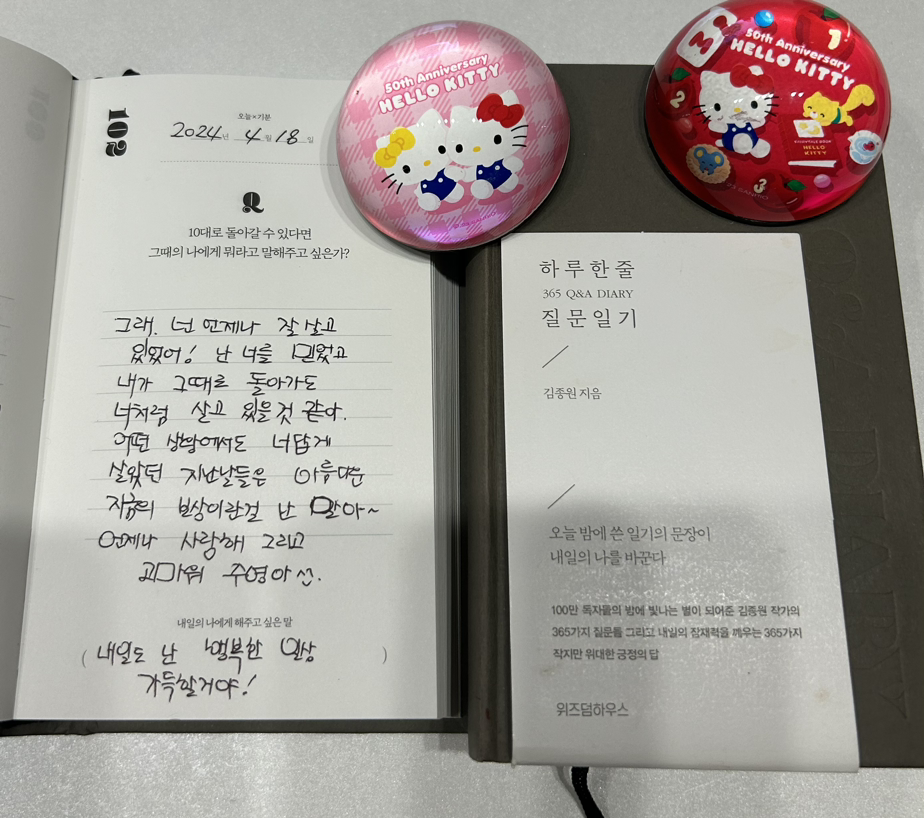 102
오늘×기분
2024년 4월 18일
Q
10대로 돌아갈 수 있다면
그때의 나에게 뭐라고 말해주고 싶은가?
그래. 넌 언제나 잘 살고
있었어! 난 너를 믿었고
내가 그때로 돌아가도
너처럼 살고 있을것 같아.
어떤 상황에서도 너답게
살았던 지난날들은 아름다운
지금의 보상이란걸 난 알아~
언제나 사랑해 그리고
고마워 주영아
내일의 나에게 해주고 싶은 말
(내일도 난 행복한 일상
가득할거야!)
50th Anniversary
HELLO KITTY
50th Anniversary
HELLO KITTY
1
2
3
HELLO
KITTY
하루 한 줄
365 Q&A DIARY
질문 일기
김종원 지음
오늘 밤에 쓴 일기의 문장이
내일의 나를 바꾼다
100만 독자들의 밤에 빛나는 별이 되어준 김종원 작가의
365가지 질문들 그리고 내일의 잠재력을 깨우는 365가지
작지만 위대한 긍정의 답
위즈덤하우스